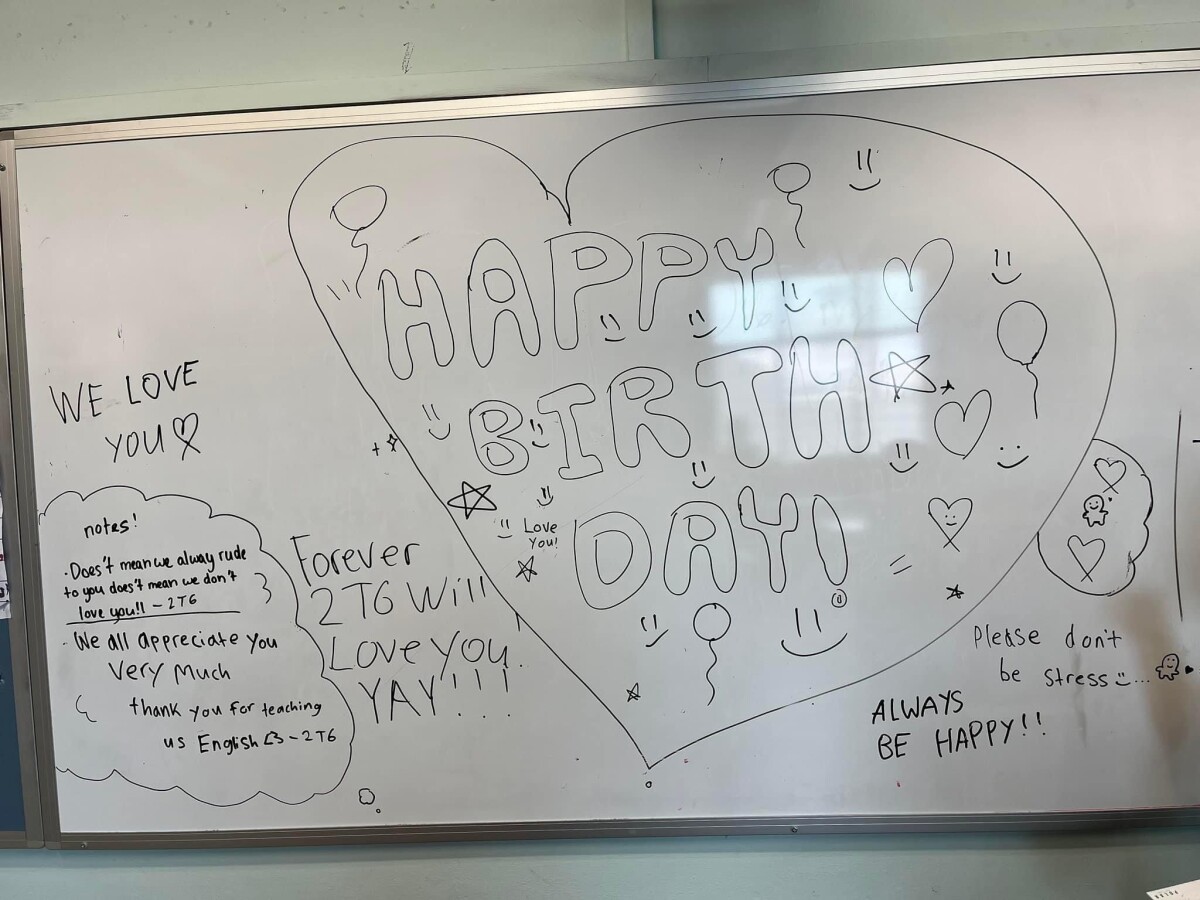 HAPPY
BIRTH
DAY!
Love
You!
WE LOVE
YOU
notes!
· Does't mean we alway rude
to you does't mean we don't
love you!! - 2T6
· We all appreciate you
Very Much
thank you for teaching
us English <3 - 2T6
Forever
2T6 Will
Love You.
YAY!!!
Please don't
be stress ...
ALWAYS
BE HAPPY!!